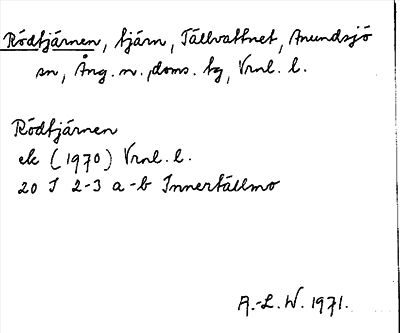 Rödtjärnen, tjärn, Tällvattnet, Anundsjö
sn, Ång. n., doms. tg, Vrnl. l.
Rödtjärnen
ek (1970) Vrnl. l.
20 J 2-3 a-b Innertällmo
A.-L. W. 1971.